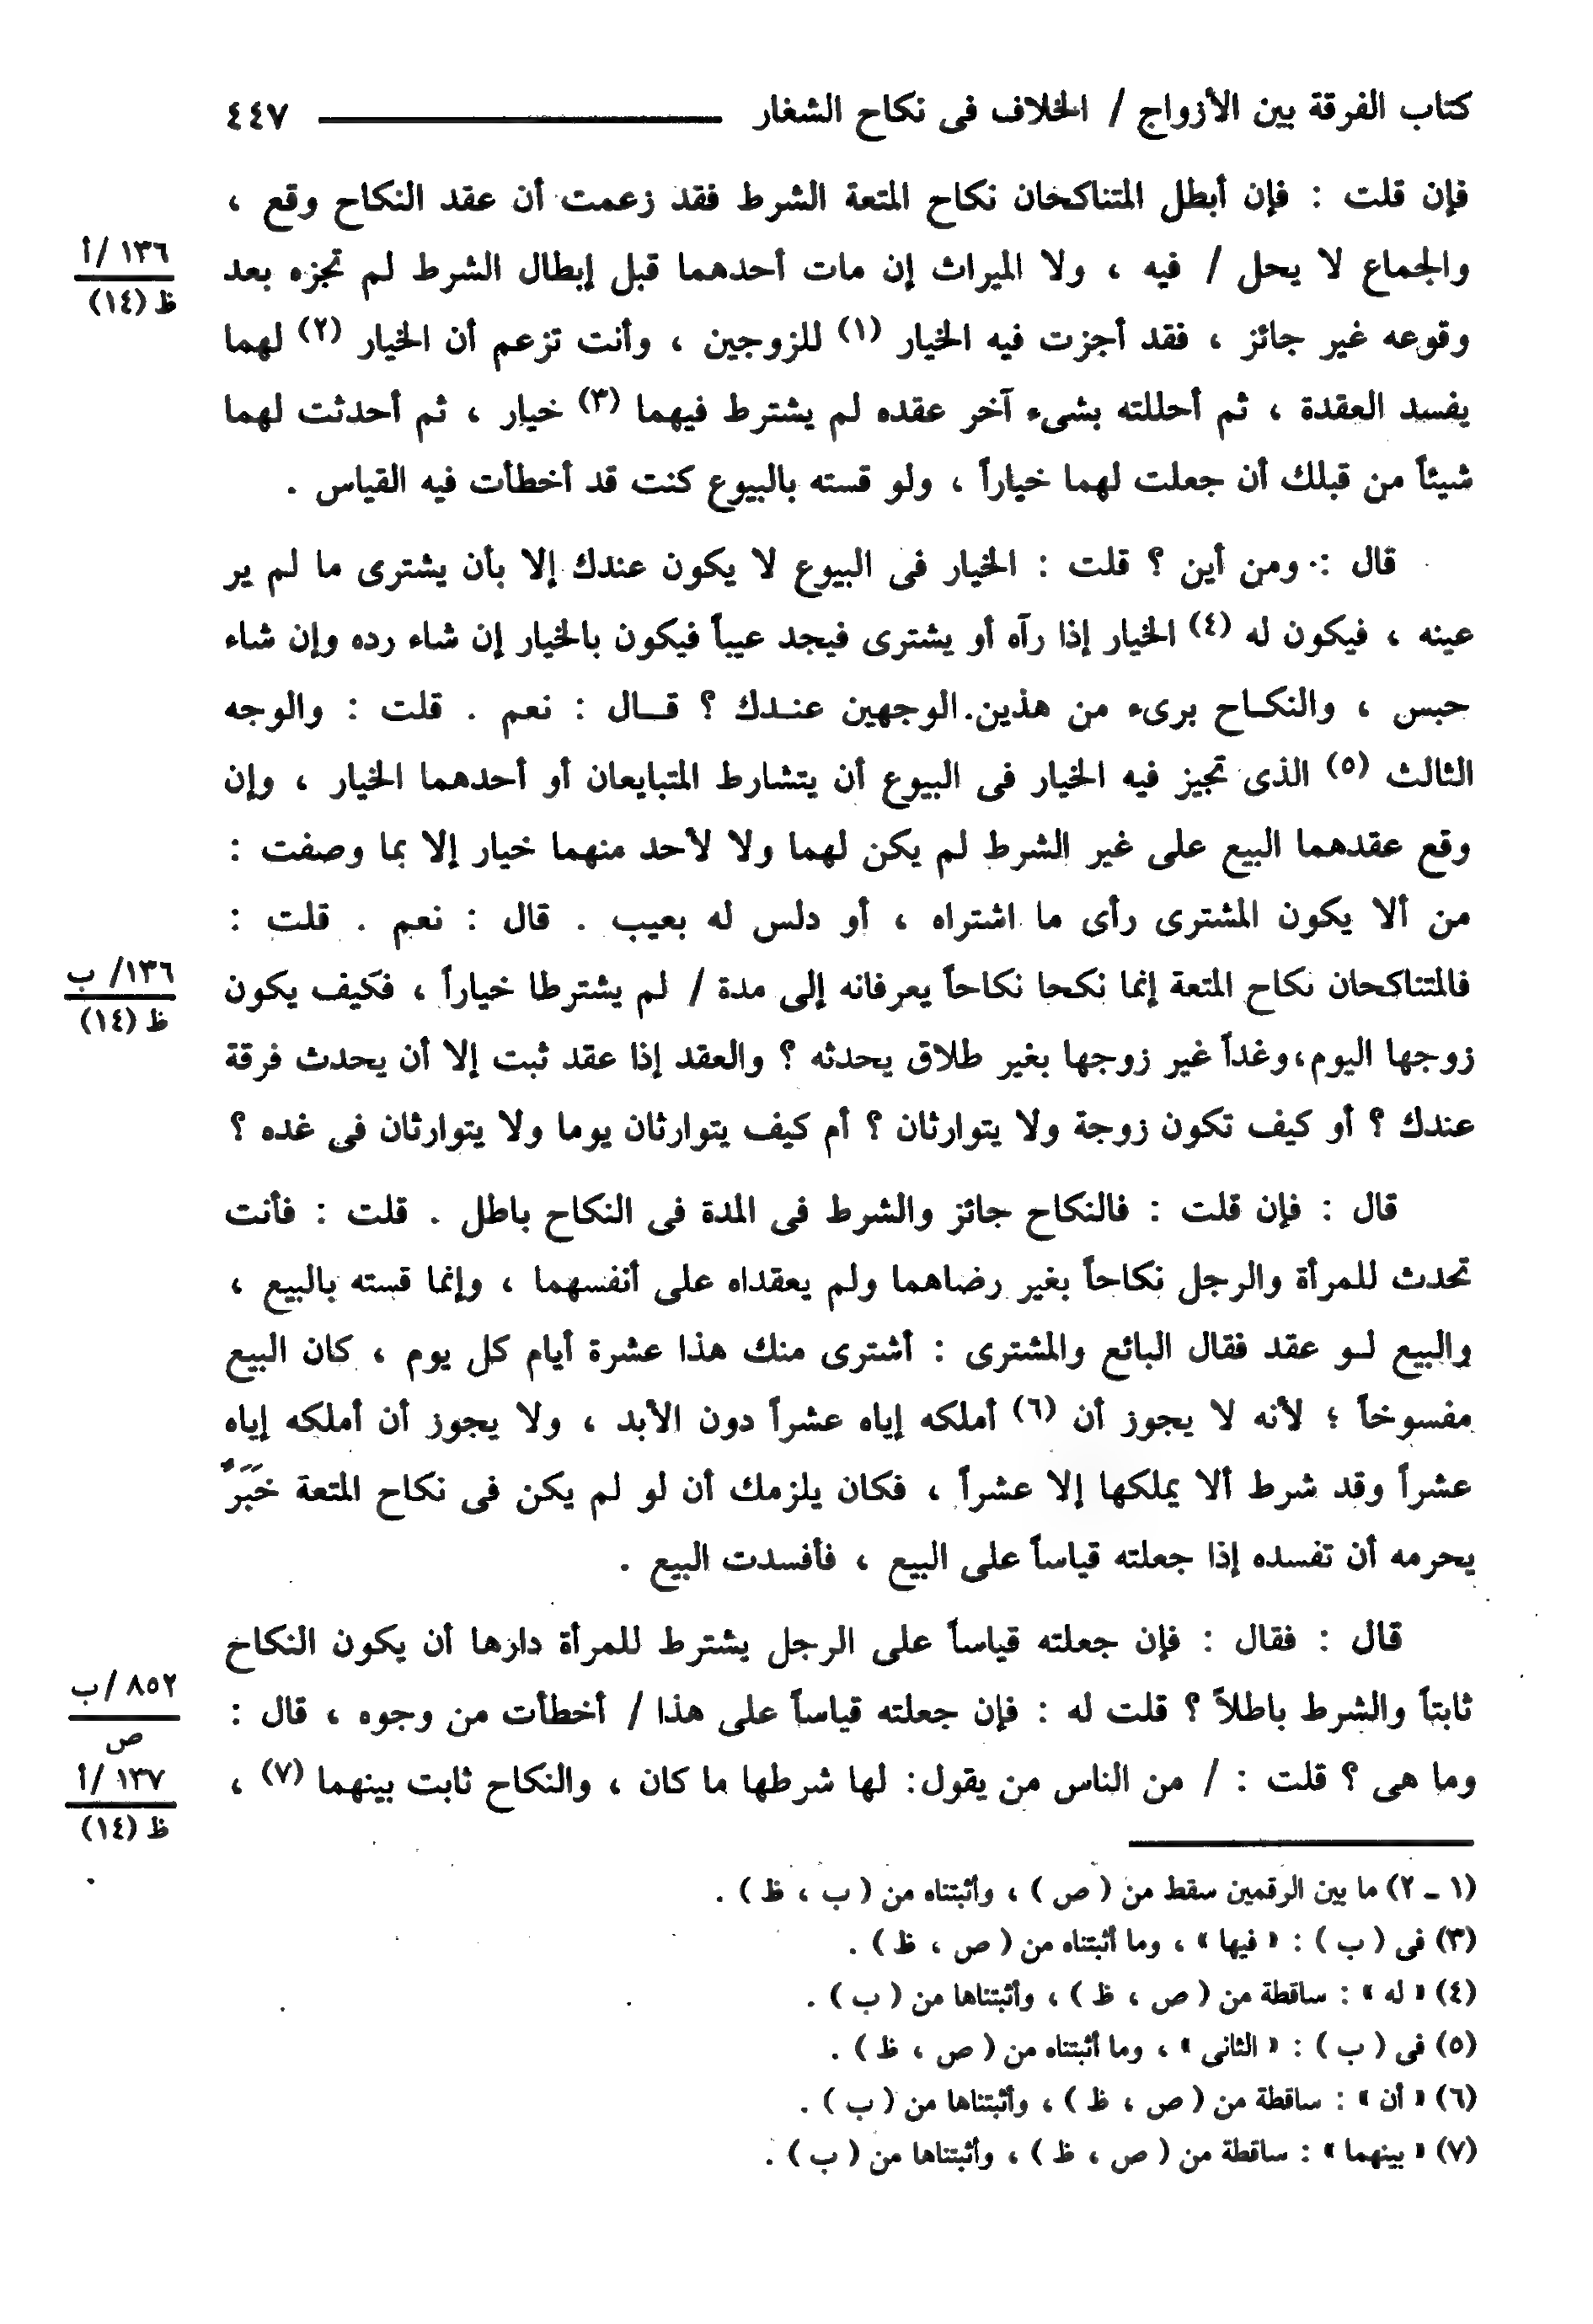 كتاب الفرقة بين الأزواج / الخلاف فى نكاح الشغار ــــــــ ٤٤٧
فإن قلت : فإن أبطل المتناكحان نكاح المتعة الشرط فقد زعمت أن عقد النكاح وقع ،
والجماع لا يحل / فيه ، ولا الميراث إن مات أحدهما قبل إبطال الشرط لم تجزه بعد
١٣٦ /أ
ظ (١٤)
وقوعه غير جائز ، فقد أجزت فيه الخيار (١) للزوجين ، وأنت تزعم أن الخيار (٢) لهما
يفسد العقدة ، ثم أحللته بشىء آخر عقده لم يشترط فيهما (٣) خيار ، ثم أحدثت لهما
شيئاً من قبلك أن جعلت لهما خياراً ، ولو قسته بالبيوع كنت قد أخطأت فيه القياس .
قال : ومن أين ؟ قلت : الخيار فى البيوع لا يكون عندك إلا بأن يشترى ما لم ير
عينه ، فيكون له (٤) الخيار إذا رآه أو يشترى فيجد عيباً فيكون بالخيار إن شاء رده وإن شاء
حبس ، والنكـاح برىء من هذين الوجهين عنـدك ؟ قـال : نعم . قلت : والوجه
الثالث (٥) الذى تجيز فيه الخيار فى البيوع أن يتشارط المتبايعان أو أحدهما الخيار ، وإن
وقع عقدهما البيع على غير الشرط لم يكن لهما ولا لأحد منهما خيار إلا بما وصفت :
من ألا يكون المشترى رأى ما اشتراه ، أو دلس له بعيب . قال : نعم . قلت :
فالمتناكحان نكاح المتعة إنما نكحا نكاحاً يعرفانه إلى مدة / لم يشترطا خياراً ، فكيف يكون
١٣٦/ ب
ظ (١٤)
زوجها اليوم،وغداً غير زوجها بغير طلاق يحدثه ؟ والعقد إذا عقد ثبت إلا أن يحدث فرقة
عندك ؟ أو كيف تكون زوجة ولا يتوارثان ؟ أم كيف يتوارثان يوما ولا يتوارثان فى غده ؟
قال : فإن قلت : فالنكاح جائز والشرط فى المدة فى النكاح باطل . قلت : فأنت
تحدث للمرأة والرجل نكاحاً بغير رضاهما ولم يعقداه على أنفسهما ، وإنما قسته بالبيع ،
والبيع لـو عقد فقال البائع والمشترى : أشترى منك هذا عشرة أيام كل يوم ، كان البيع
مفسوخاً ؛ لأنه لا يجوز أن (٦) أملكه إياه عشراً دون الأبد ، ولا يجوز أن أملكه إياه
عشراً وقد شرط ألا يملكها إلا عشراً ، فكان يلزمك أن لو لم يكن فى نكاح المتعة خَبَرٌ
يحرمه أن تفسده إذا جعلته قياساً على البيع ، فأفسدت البيع .
قال : فقال : فإن جعلته قياساً على الرجل يشترط للمرأة دارها أن يكون النكاح
ثابتاً والشرط باطلاً ؟ قلت له : فإن جعلته قياساً على هذا / أخطأت من وجوه ، قال :
٨٥٢ /ب
ص
وما هى ؟ قلت : / من الناس من يقول: لها شرطها ما كان ، والنكاح ثابت بينهما (٧) ،
١٣٧ /أ
ظ (١٤)
(١ ـ ٢) ما بين الرقمين سقط من ( ص ) ، وأثبتناه من ( ب ، ظ ) .
(٣) فى ( ب ) : « فيها » ، وما أثبتناه من ( ص ، ظ ) .
(٤) « له » : ساقطة من ( ص ، ظ ) ، وأثبتناها من ( ب ) .
(٥) فى ( ب ) : « الثانى » ، وما أثبتناه من ( ص ، ظ ) .
(٦) « أن » : ساقطة من ( ص ، ظ ) ، وأثبتناها من ( ب ) .
(٧) « بينهما » : ساقطة من ( ص ، ظ ) ، وأثبتناها من ( ب ) .